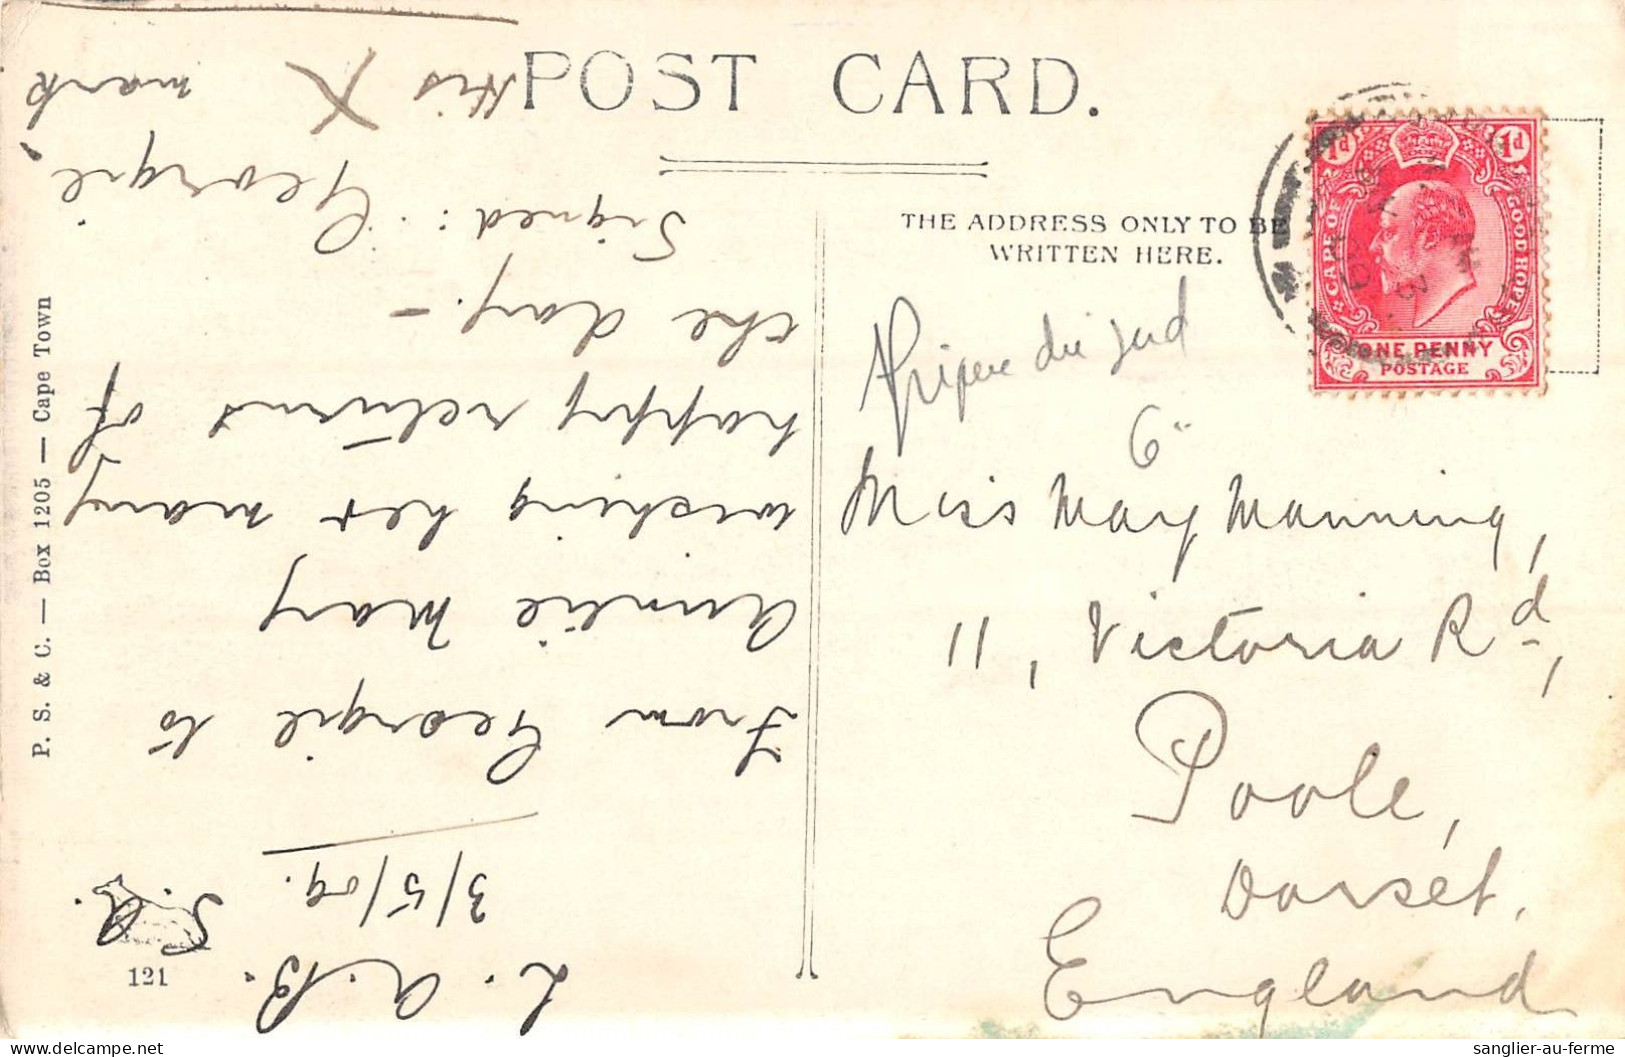 POST CARD.
THE ADDRESS ONLY TO BE
WRITTEN HERE.
1d 1d
CAPE OF GOOD HOPE
ONE PENNY
POSTAGE
Afrique du sud
6"
Miss May Manning,
11, Victoria Rd,
Poole,
Dorset.
England
L.A.B. S.A.
3/5/09.
From Georgie to
Auntie Mary
wishing her many
happy returns of
the day. —
Signed: Georgie,
His X mark
P. S. & C. — Box 1205 — Cape Town
121
sanglier-au-ferme